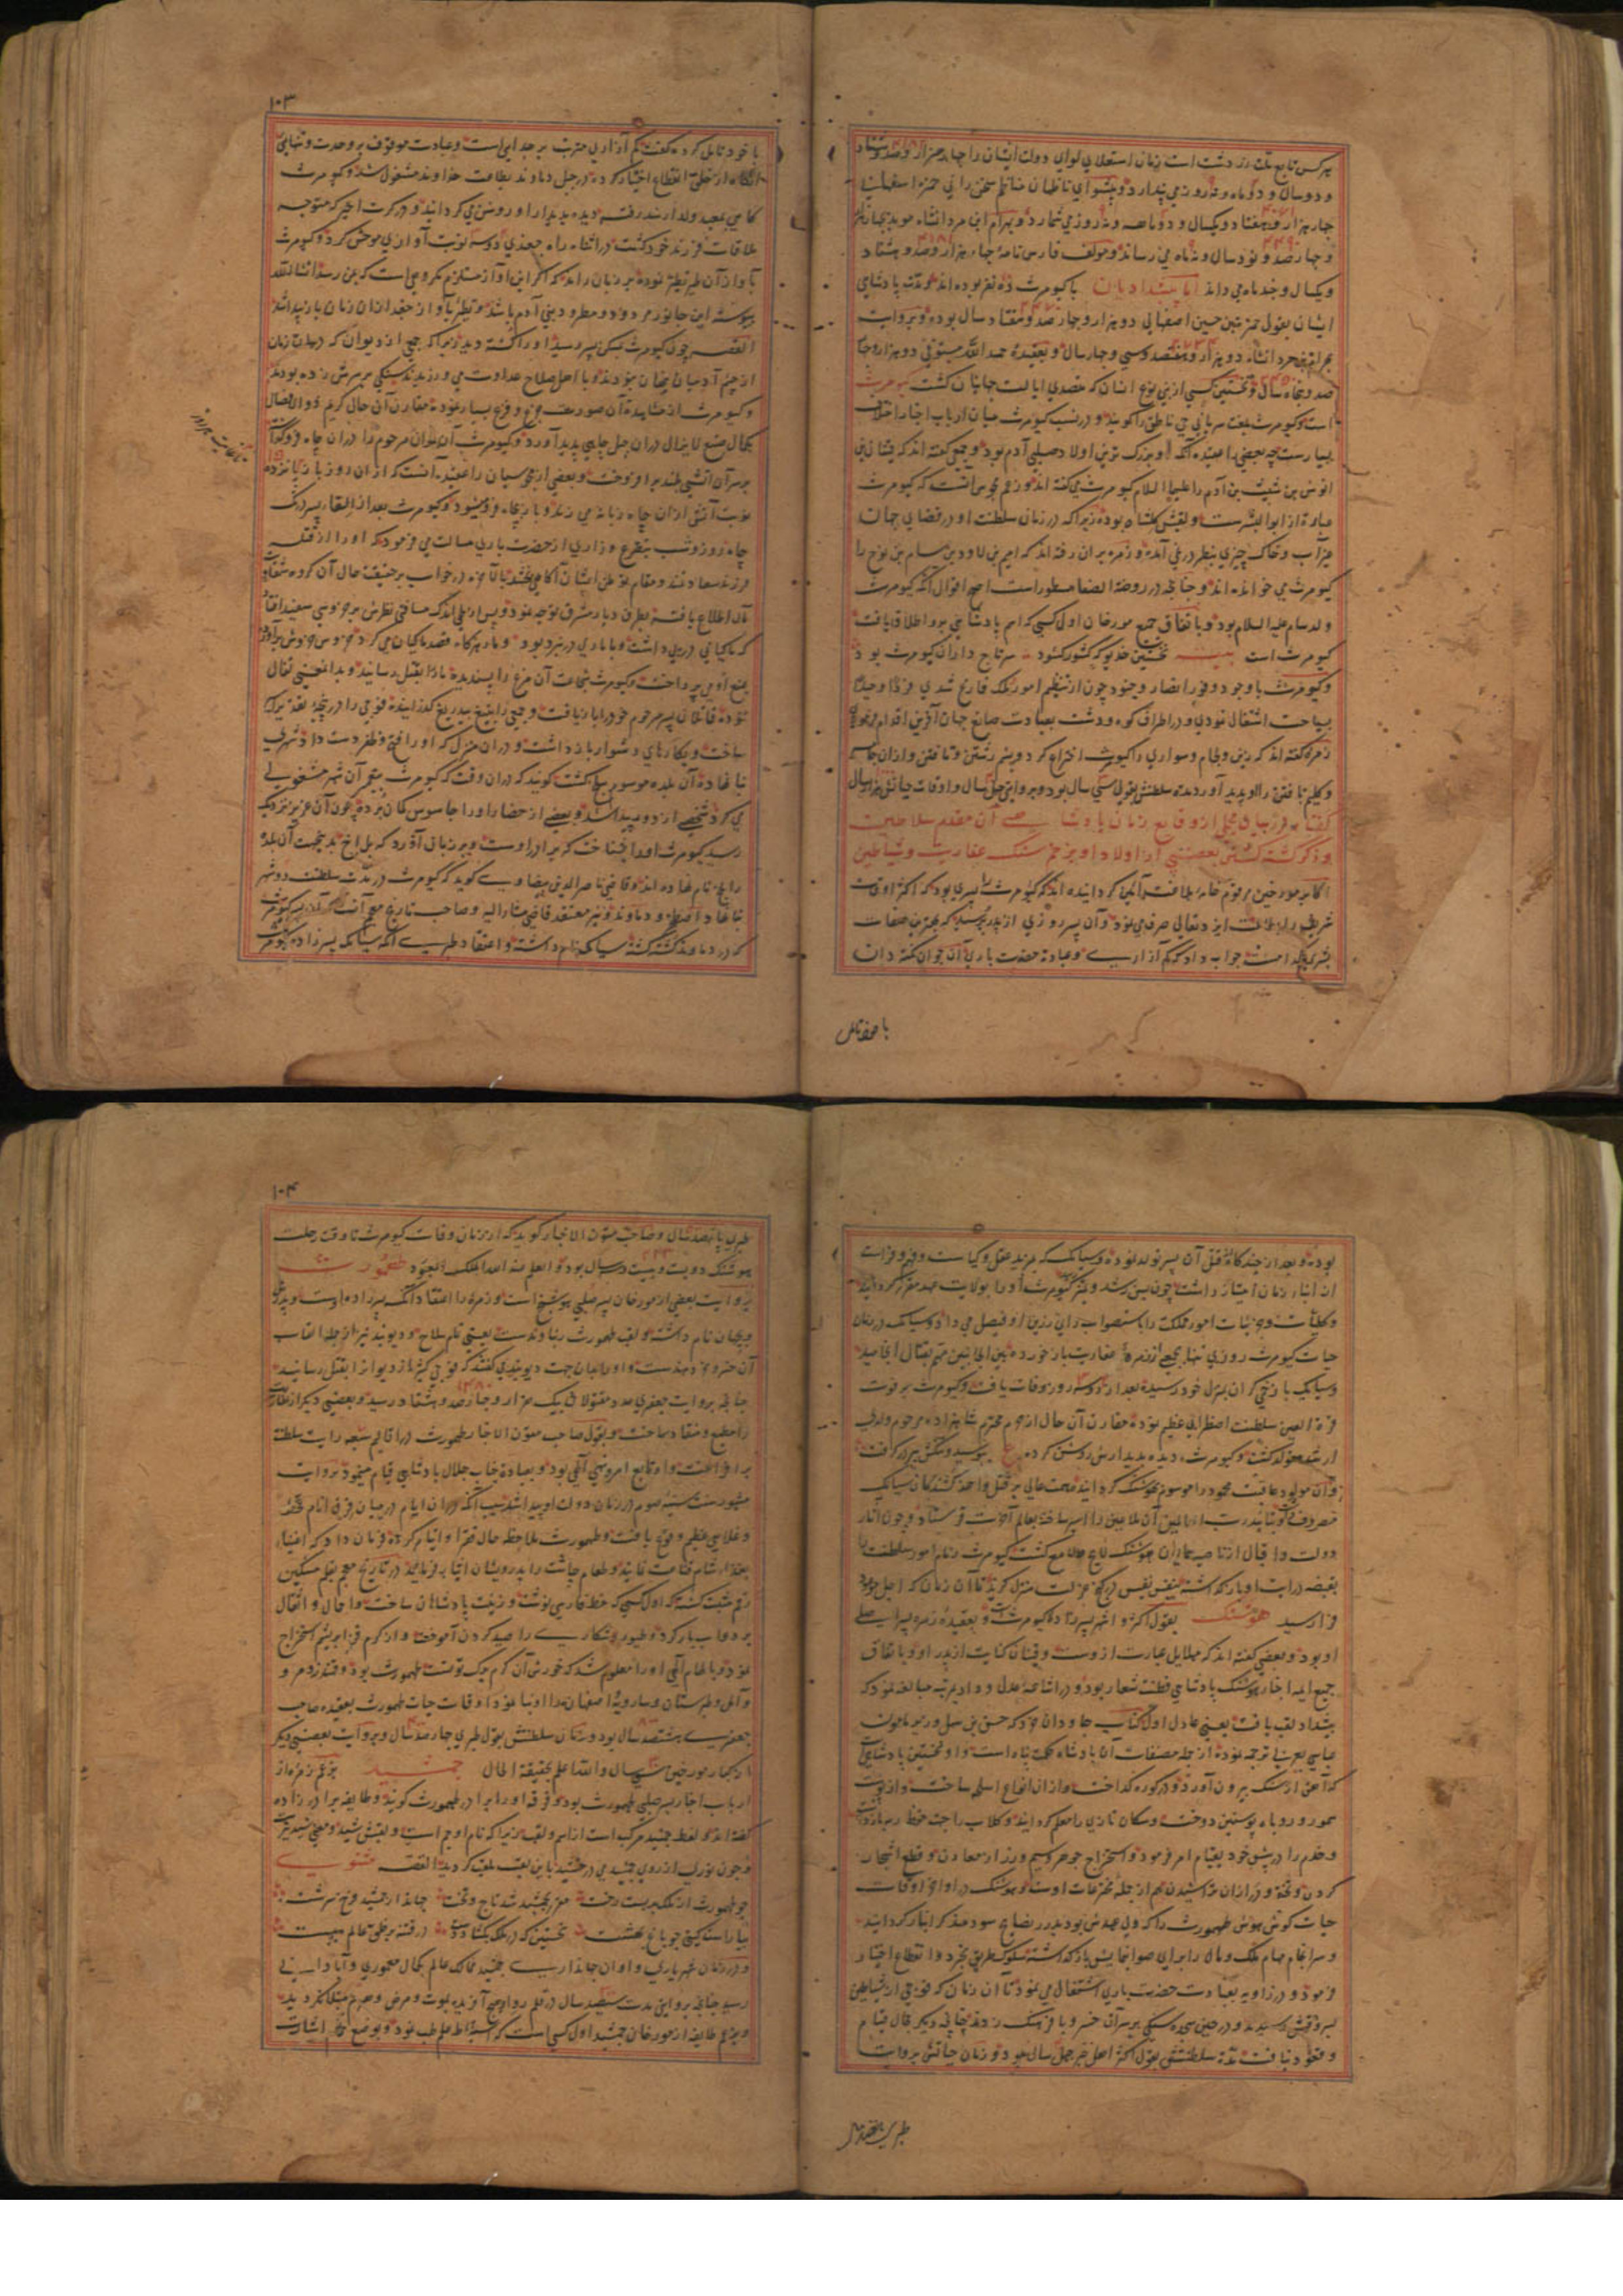 هر کس تابع ملت زردشت است زمان استعلای لوای دولت ایشان را چهار هزار و صد و هشتاد
و دو سال و دو ماه و نه روز می پندارد و پیشوای ناظمان مناظم سخن رانی حمزه اصفهانی
چهار هزار و هفتاد و یکسال و دو ماه و نه روز می شمارد و بهرام ابن مردانشاه موبد
و چهارصد و نود سال و نه ماه می رساند و مولف فارس نامه چهار هزار و صد و هشتاد
و یکسال و چند ماه می داند اما پیشدادیان با کیومرث ده نفر بوده اند و مدت پادشاهی
ایشان بقول حمزه بن حسین اصفهانی دو هزار و چهارصد و هفتاد سال بوده و بروایت
بهرام بن مردانشاه دو هزار و هفتصد و سی و چهار سال و بعقیده حمد الله مستوفی دو هزار و چهار
صد و پنجاه سال و نخستین کسی از بنی نوع انسان که متصدی ایالت جهانیان گشت کیومرث
است و کیومرث بلغت سریانی حی ناطق را گویند و در نسب کیومرث میان ارباب اخبار اختلاف
بسیارست چه بعضی را عقیده آنکه او بزرگ ترین اولاد صلبی آدم بود و جمعی گفته اند که قینان بن
انوش بن شیث بن آدم را علیهم السلام کیومرث می گفته اند و زعم مجوس آنست که کیومرث
عبارة از ابو البشرست و لقبش گلشاه بوده زیرا که در زمان سلطنت او در فضای جهان
غیر آب و خاک چیزی بنظر در نمی آمده و زمره بر آن رفته اند که امیم بن لاود بن سام بن نوح را
کیومرث می خوانده اند و چنانچه در روضة الصفا مسطور است اصح اقوال آنکه کیومرث
ولد سام علیه السلام بود و باتفاق جمیع مورخان اول کسی که اسم پادشاهی برو اطلاق یافت
کیومرث است بیت نخستین خدیوی که کشور گشود سر تاج داران کیومرث بود
و کیومرث با وجود وفور انصار و جنود چون از تنظیم امور ملک فارغ شدی فردا وحیدا
بسیاحت اشتغال نمودی و در اطراف کوه و دشت بعبادت صانع جهان آفرین اقدام فرمودی
زمره گفته اند که زین و لجام و سواری را کیومرث اختراع کرد و پشم رشتن و بافتن و از آن جامه
و گلیم بافتن را او پدید آورد مدت سلطنتش بقولی سی سال بود و بروایتی چهل سال و اوقات حیاتش هزار سال
گفتار در بیان مجملی از وقایع زمان پادشاهی آن مقدم سلاطین
و ذکر کشته گشتن بعضی از اولاد او بزخم سنگ عفاریت و شیاطین
اکابر مورخین مرقوم خامه بلاغت آئین گردانیده اند که کیومرث را پسری بود که اکثر اوقات
شریف را بطاعت ایزد تعالی صرف می نمود و آن پسر روزی از پدر پرسید که بهترین صفات
بشری کدام است جواب داد که کم آزاری و عبادة حضرت باری آن جوان نکته دان
با خود تامل
۱۰۳
با خود تامل کرده گفت که کم آزاری مترتب بر جدایی است و عبادت موقوف بر وحدت و تنهایی
آنگاه از خلق انقطاع اختیار کرده در جبل دماوند بطاعت خداوند مشغول شد و کیومرث
گاهی بمعبد ولد ارشد رفته دیده بدیدار او روشن می گردانید و در کرت اخیر که متوجه
ملاقات فرزند خود گشت در اثناء راه جغدی دو سه نوبت آوازی موحش کرد و کیومرث
بآواز آن طیر تطیر نموده بر زبان راند که اگر این آواز مستلزم مکروهی است که بمن رسد انشاء الله
پیوسته این جانور مردود و مطرود بنی آدم باشد و تطیر بآواز جغد از آن زمان باز پیدا شد
القصه چون کیومرث بمسکن پسر رسید او را کشته دید زیرا که جمعی از دیوان که در آن زمان
از چشم آدمیان پنهان نبودند و با اهل صلاح عداوت می ورزیدند سنگی بر سرش زده بودند
و کیومرث از مشاهدة آن صورت جزع و فزع بسیار نموده مقارن آن حال کریم ذو الافضال
بکمال صنع لایزال در آن جبل چاهی پدید آورد و کیومرث آن جوان مرحوم را در آن چاه فرو گذاشت
بر سر آن آتشی بلند بر افروخت و بعضی از مجوسیان را عقیده آنست که از آن روز باز پانزده
نوبت آتش از آن چاه زبانه می زند و باز بچاه فرو میشود و کیومرث بعد از القاء پسر در آن
چاه روز و شب بتضرع و زاری از حضرت باری مسالت می فرمود که او را از قتله
فرزند سعادتمند و مقام توطن ایشان آگاهی بخشد تا بالاخره در خواب بر حقیقت حال آن گروه شقاوت
مآل اطلاع یافته بطرف دیار مشرق توجه نمود و پس از طی اندک مسافتی نظرش بر خروسی سفید افتاد
که ماکیانی در پی داشت و با ماری در نبرد بود و مار هرگاه قصد ماکیان می کرد خروس خروش برآورده
بمنع او می پرداخت و کیومرث شجاعت آن مرغ را پسندیده مار را بقتل رسانید و بدانمعنی تفال
نموده قاتلان پسر مرحوم خود را باز یافت و جمعی را بتیغ بیدریغ گذرانیده فوجی را در پنجه تقدیر اسیر
ساخت و بکارهای دشوار باز داشت و در آن منزل که او را فتح و ظفر دست داد شهری
بنا نهاد و آن بلده موسوم ببلخ گشت گویند که در آن وقت که کیومرث بتعمیر آن شهر مشغولی
می کرد شخصی از دور پیدا شد و بعضی از حضار او را جاسوس گمان بردند چون آن عزیز نزدیک
رسید کیومرث او را بشناخت که برادر اوست و بر زبان آورد که بل اخ بدینجهت آن بلده
را بلخ نام نهاده اند و قاضی ناصر الدین بیضاوی گوید که کیومرث در مدت سلطنت دو شهر
بنا نهاد اصطخر و دماوند و نیز معتقد قاضی مشار الیه و صاحب تاریخ معجم آنست که آن پسر کیومرث
که در دماوند کشته گشته سیامک نام داشته و اعتقاد طبری آنکه سیامک پسر زاده کیومرث
بوده و بعد از چندگاه از قتل آن پسر تولد نموده و سیامک که بمزید عقل و کیاست و فهم و فراست
از ابناء زمان امتیاز داشت چون بسن رشد و تمیز رسید کیومرث او را بولایت عهد مقرر گردانید
و کلیات و جزئیات امور مملکت را باستصواب رای رزین او فیصل می داد و سیامک در زمان
حیات کیومرث روزی تنها بجمعی از زمره عفاریت باز خورده بین الجانبین مهم بقتال انجامید
و سیامک با زخمی گران بمنزل خود رسیده بعد از دو سه روز وفات یافت و کیومرث بر فوت
قرة العین سلطنت اضطرابی عظیم نموده مقارن آن حال از حرم محترم شاهزاده مرحوم ولدی
ارشد متولد گشت و کیومرث دیده بدیدارش روشن کرده ع ببوسید و تنگش ببر در گرفت
و آن مولود عاقبت محمود را موسوم بهوشنگ گردانید و همت عالی بر قتل و اخذ کشندگان سیامک
مصروف داشت و بتائید رب العالمین آن ملاعین را اسیر ساخته بعالم آخرت فرستاد و چون آثار
دولت و اقبال از ناصیه همایون هوشنگ لایح و لامع گشت کیومرث زمام امور سلطنت را
بقبضه درایت او باز گذاشته بنفس نفیس در کنج عزلت منزل گزید تا آن زمان که اجل موعود
فرا رسید هوشنگ بقول اکثر و اشهر پسر زاده کیومرث است و بعقیده زمره پسر صلبی
او بود و بعضی گفته اند که مهلایل عبارت از وست و قینان کنایت از پدر او و باتفاق
جمیع ائمه اخبار هوشنگ پادشاهی فطنت شعار بود و در اشاعه عدل و داد بمرتبه مبالغه نمود که
پیشداد لقب یافت یعنی عادل اول و کتاب جاودان خرد که حسن بن سهل وزیر مامون
عباسی بعربی ترجمه نموده از جمله مصنفات آن پادشاه حکمت پناه است و او نخستین پادشاهی است
که آهن از سنگ بیرون آورد و در کوره گداخت و از آن انواع اسلحه ساخت و از پوست
سمور و روباه پوستین دوخت و سگان تازی را معلم گردانید و کلاب را جهت حفظ رمه باز داشت
و خدم را در پیش خود بقیام امر فرمود و استخراج جوهر و سیم و زر از معادن و قطع اشجار
کردن و تخته و در از آن تراشیدن هم از جمله مخترعات اوست و هوشنگ در اواخر اوقات
حیات گوش هوش طهمورث را که ولی عهدش بود بدرر نصایح سودمند گرانبار گردانید
و سرانجام مهام ملک و مال را برای صوابنمایش باز گذاشته سلوک طریق تجرد و انقطاع اختیار
فرمود و در زاویه بعبادت حضرت باری اشتغال می نمود تا آن زمان که فوجی از شیاطین
بسر وقتش رسیدند و در حین سجده سنگی بر سر آن خسرو با فرهنگ زدند چنانچه دیگر مجال قیام
و قعود نیافت مدة سلطنتش بقول اکثر اهل خبر چهل سال بود و زمان حیاتش بروایت
طبری پانصد سال
۱۰۴
طبری پانصد سال و صاحب متون الاخبار گوید که از زمان وفات کیومرث تا وقت رحلت
هوشنگ دویست و بیست و سه سال بود و العلم عند الله الملک المعبود طهمورث
بروایت بعضی از مورخان پسر صلبی هوشنگ است و زمره را اعتقاد آنکه پسر زاده اوست و پدرش
ویجهان نام داشته و لقب طهمورث زیناوندست یعنی تمام سلاح و دیوبند نیز از جمله القاب
آن خسرو خردمندست و او را بدان جهت دیوبند می گفتند که فوجی کثیر از دیوان را بقتل رسانید
چنانچه بروایت جعفری عدد مقتولان بیک هزار و چهارصد و هشتاد رسید و بعضی دیگر از عفاریت
را مطیع و منقاد ساخت و بقول صاحب متون الاخبار طهمورث در اقالیم سبعه رایت سلطنت
بر افراخت و او تابع امر و نهی الهی بود و بعبادة جناب جلال پادشاهی قیام مینمود بروایت
مشهور سنت سنیه صوم در زمان دولت او پیدا شد بسبب آنکه در آن ایام در میان فرق انام قحط
و غلایی عظیم وقوع یافت و طهمورث ملاحظه حال فقرا و ایتام کرده فرمان داد که اغنیا
بغذاء شام قناعت نمایند و طعام چاشت را بدرویشان ایثار فرمایند در تاریخ معجم بقلم مشکین
رقم ثبت گشته که اول کسی که خط فارسی نوشت و زینت پادشاهان ساخت و احمال و اثقال
بر دواب بار کرد و طیور شکاری را صید کردن آموخت و از کرم قز ابریشم استخراج
نمود و بالهام الهی او را معلوم شد که خورش آن کرم برگ توتست طهمورث بود و قندز و مرو
و آمل و طبرستان و سارویه اصفهان را او بنا نمود اوقات حیات طهمورث بعقیده صاحب
جعفری هشتصد سال بود و زمان سلطنتش بقول طبری چهارصد سال و بروایت بعضی دیگر
از کبار مورخین سی سال و الله اعلم بحقیقة الحال جمشید بزعم زمره از
ارباب اخبار پسر صلبی طهمورث بود و فرقه او را برادر طهمورث گویند و طایفه برادر زاده
گفته اند و لفظ جمشید مرکب است از اسم و لقب زیرا که نام او جم است و لقبش شید و معنی شید نیر است
و چون نور از روی جمشید می درخشید باین لقب ملقب گردید القصه مثنوی
چو طهمورث از ملک بربست رخت مقرر بجمشید شد تاج و تخت جهاندار جمشید فرخ سرشت
بیاراست گیتی چو باغ بهشت نخستین که در ملک بگشاد دست در فتنه بر خلق عالم ببست
و در زمان شهریاری و اوان جهانداری جمشید ممالک عالم بکمال معموری و آبادانی
رسید چنانچه بروایتی مدت سیصد سال در قلمرو او هیچ آفریده بموت و مرض و هرم مبتلا نگردید
و بزعم طایفه از مورخان جمشید اول کسی است که استنباط علم طب نمود و بوضع حمام اشارت